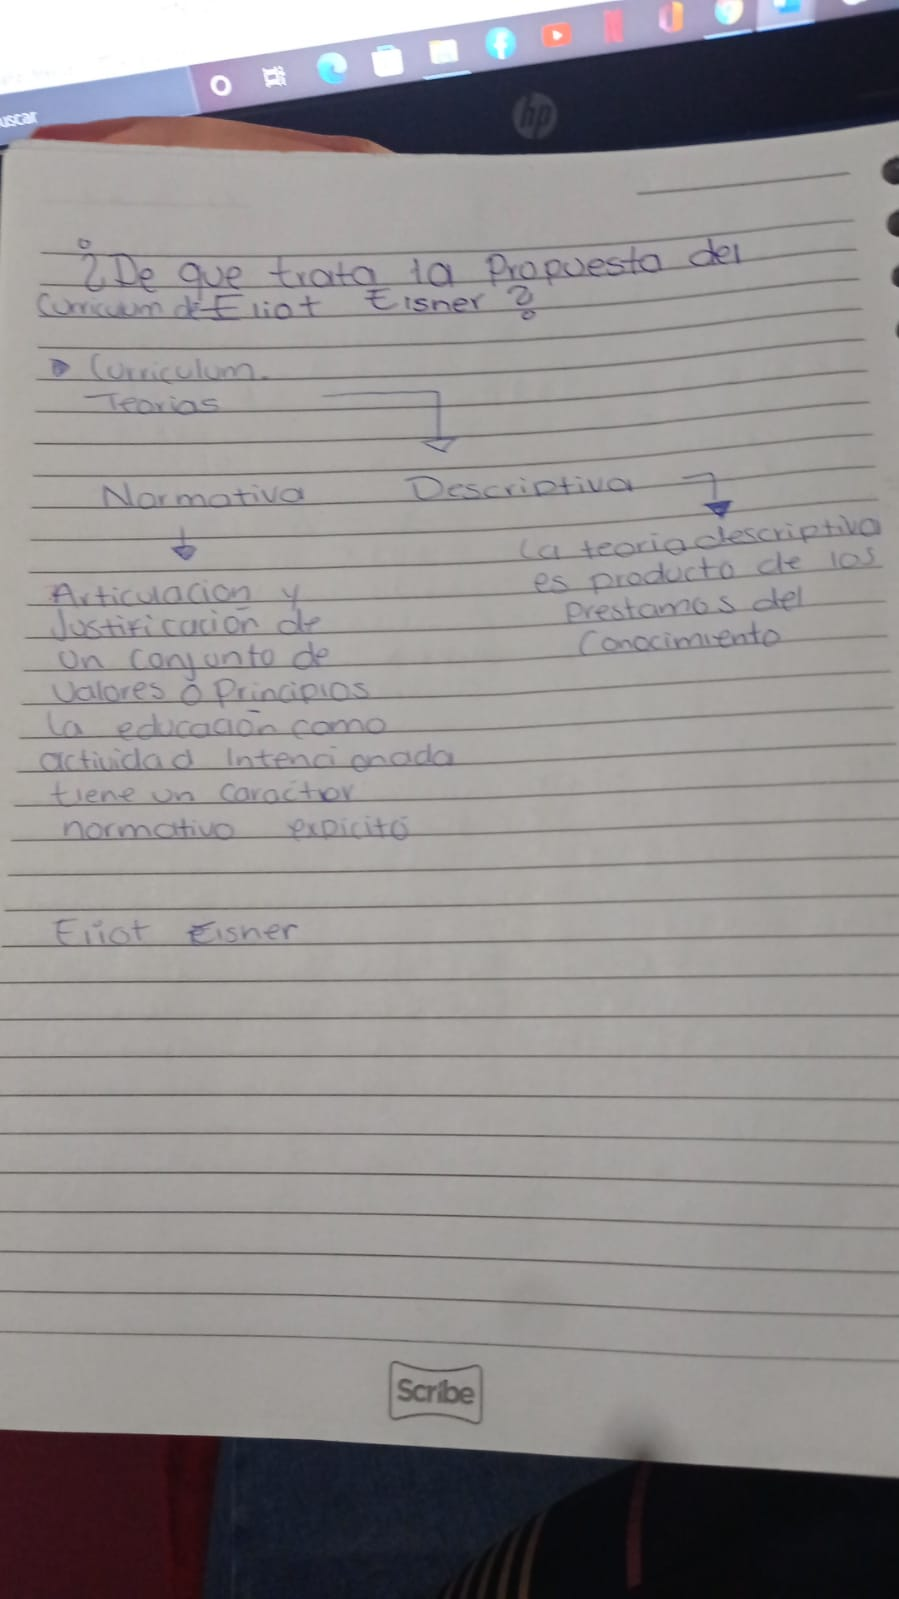 uscar
hp
¿De que trata la Propuesta del
Curricuum de Eliot Eisner?
Curriculum.
Teorias
Normativa Descriptiva
Articulacion y
Justificación de
un conjunto de
valores o Principios
la educación como
actividad Intencionada
tiene un
normativo expicito
la teoria descriptiva
es producto de los
Prestamos del
Conocimiento
Eliot Eisner
Scribe